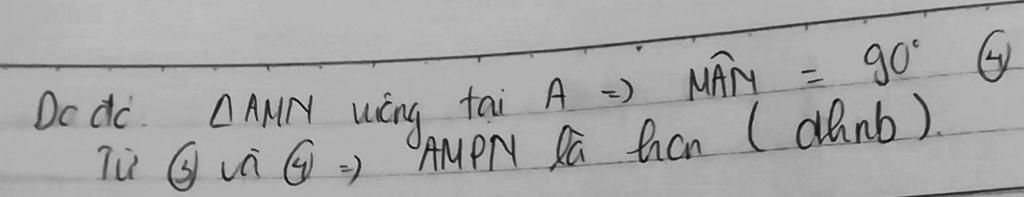 Do đó. ΔAMN vuông tại A => MÂN = 90° ④
Từ ③ và ④ => AMPN là hcn (dhnb).